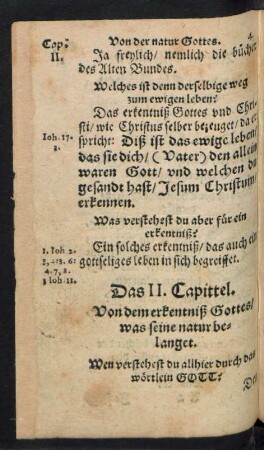 Cap.
II.
Von der natur Gottes.
Ja freylich/ nemlich die bücher
des Alten Bundes.
Welches ist denn derselbige weg
zum ewigen leben?
Das erkentniß Gottes vnd Chri-
sti/ wie Christus selber bezeuget/ da er
Ioh. 17.
3.
spricht: Diß ist das ewige leben/
das sie dich/ (Vater) den allein
waren Gott/ vnd welchen du
gesandt hast/ Jesum Christum/
erkennen.
Was verstehest du aber für ein
erkentniß?
1. Ioh 2.
Ein solches erkentniß/ das auch ein
gottseliges leben in sich begreiffet.
4. 7, 8.
3 Ioh. 11.
Das II. Capittel.
Von dem erkentniß Gottes/
was seine natur be-
langet.
Wen verstehest du allhier durch das
wörtlein GOTT?